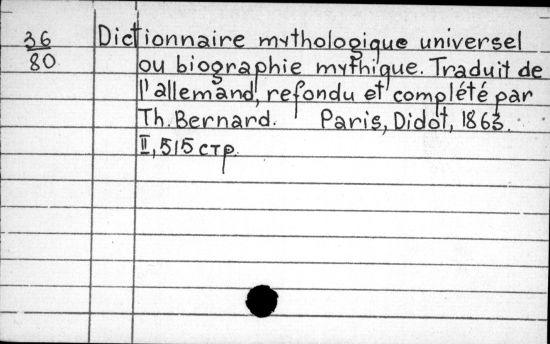 36
80
Dictionnaire mythologique universel
ou biographie mythique. Traduit de
l'allemand, refondu et complété par
Th. Bernard. Paris, Didot, 1863.
II, 515 стр.